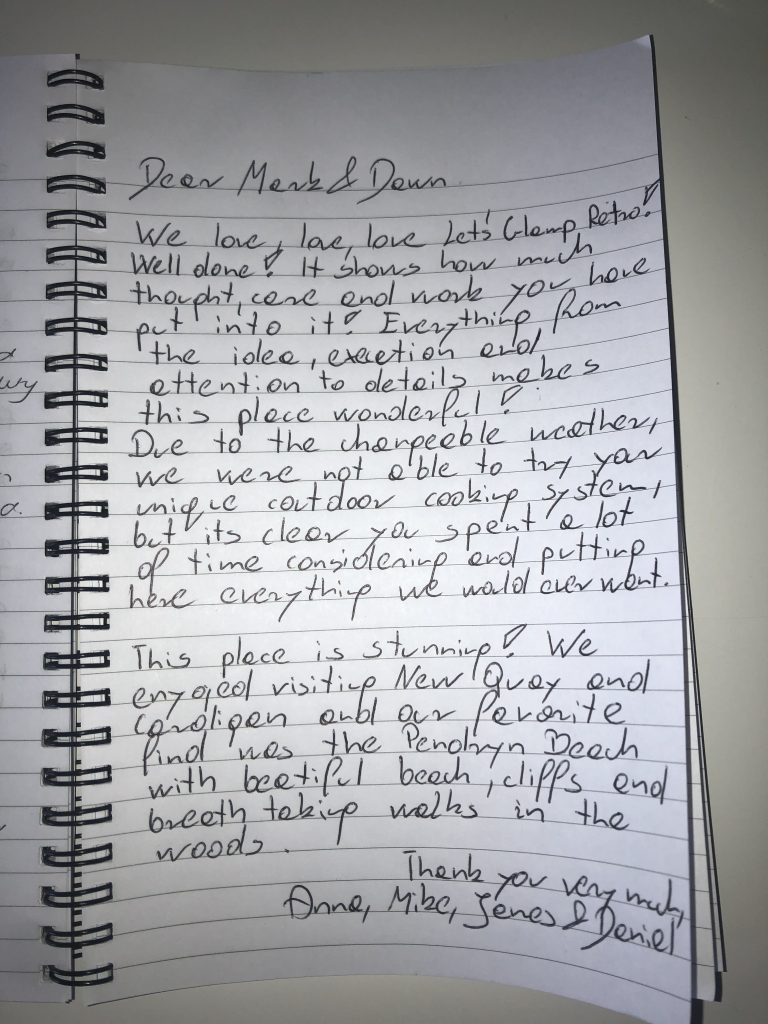 Dear Mark & Dawn
We love, love, love Let's Glamp Retro!
Well done! It shows how much
thought, care and work you have
put into it! Everything from
the idea, exection and
attention to details makes
this place wonderful!
Due to the changeable weather,
we were not able to try your
unique coutdoor cooking system,
but its clear you spent a lot
of time considering and putting
here everything we would ever want.
This place is stunning! We
enyojed visiting New Quay and
Cardigan and our favorite
find was the Penbryn Beach
with beatiful beach, cliffs and
breath taking walks in the
woods.
Thank you very much,
Anna, Mike, James & Daniel
wy
a.